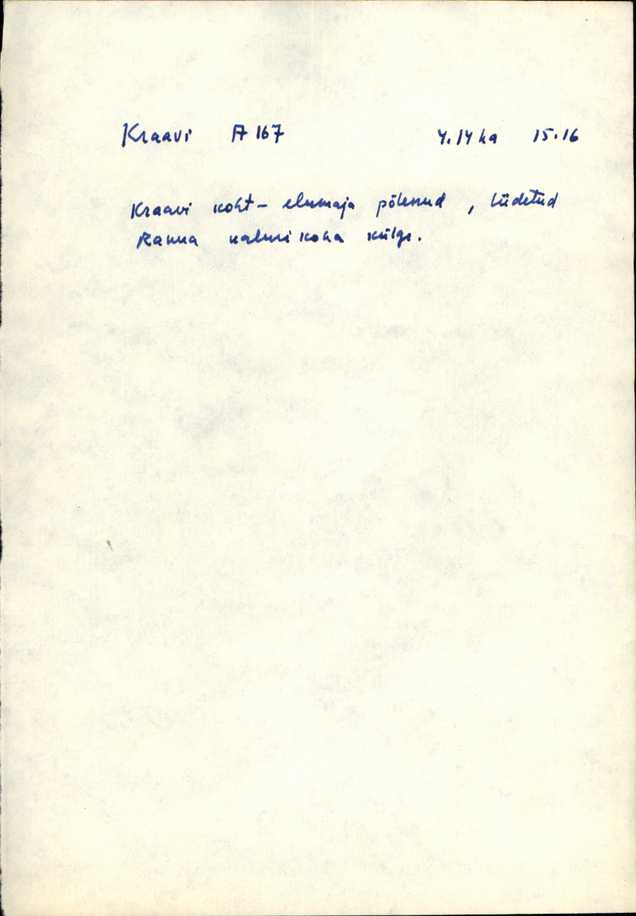 Kraavi A 167 4.14 ha 15.16
Kraavi koht - elumaja põlenud, liidetud
Ranna kalurikoha külge.